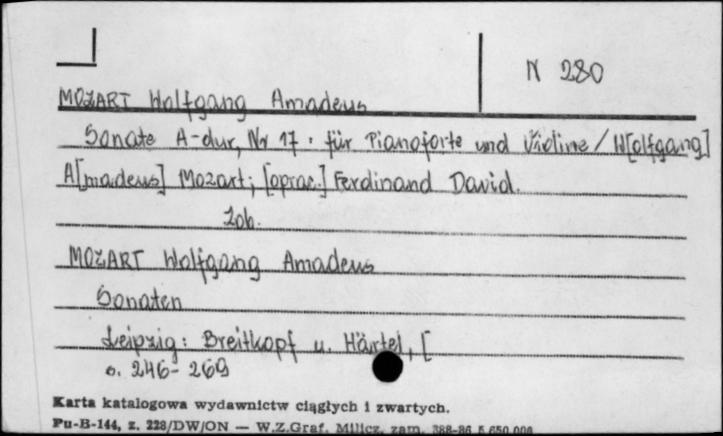 N 280
MOZART Wolfgang Amadeus
Sonate A-dur, Nr 17 : für Pianoforte und Violine / W[olfgang]
A[madeus] Mozart ; [oprac.] Ferdinand David.
Zob.
MOZART Wolfgang Amadeus
Sonaten
Leipzig : Breitkopf u. Härtel, [
s. 246-269
Karta katalogowa wydawnictw ciągłych i zwartych.
Pu-B-144, z. 228/DW/ON — W.Z.Graf. Milicz, zam. 388-86 5.650.000